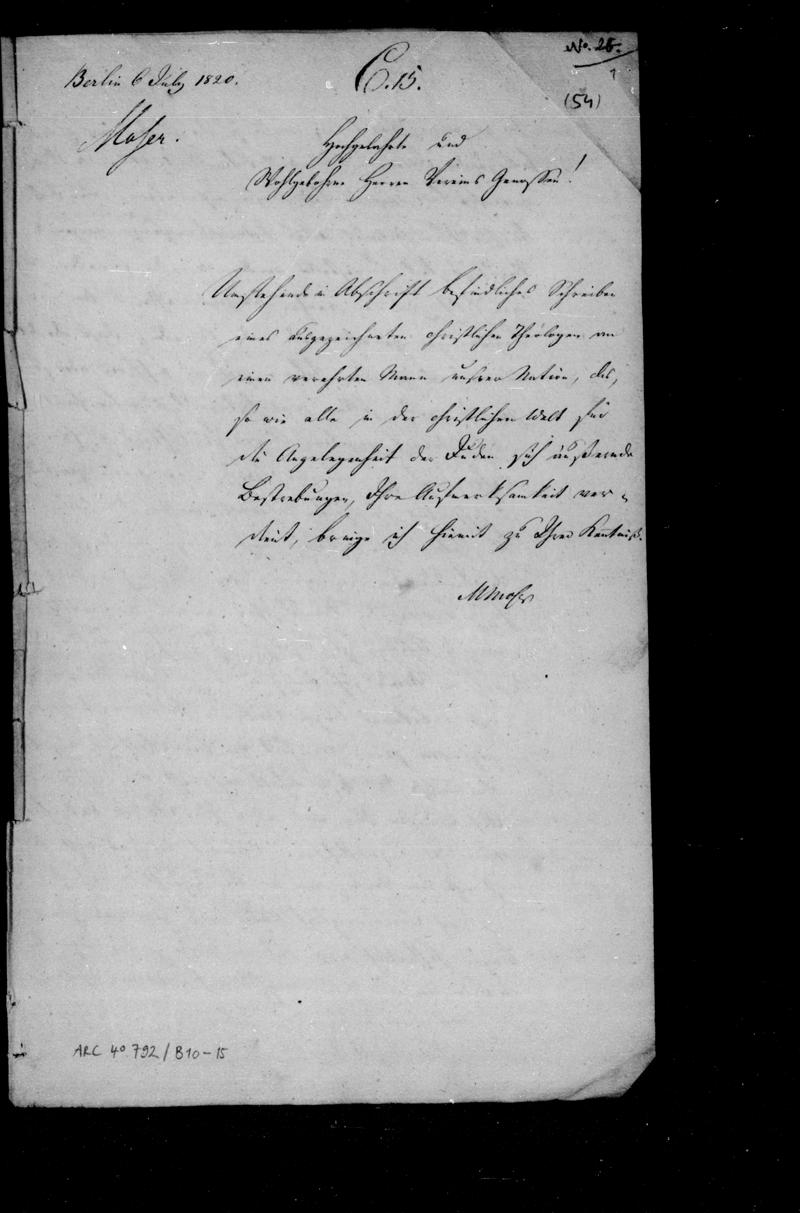 No. 25.
1
(54)
Berlin 6 July 1820.
C. 15.
Moser.
Hochgelahrte und
Wohlgebohrne Herren Vereins Genossen!
Umstehende in Abschrift befindliches Schreiben
eines ausgezeichneten christlichen Theologen an
einen verehrten Mann unsrer Nation, das,
so wie alle in der christlichen Welt für
die Angelegenheit der Juden sich äußernde
Bestrebungen, Ihre Aufmerksamkeit ver-
dient, bringe ich hiemit zu Ihrer Kentniß.
M Moser
ARC 4° 792 / B10-15